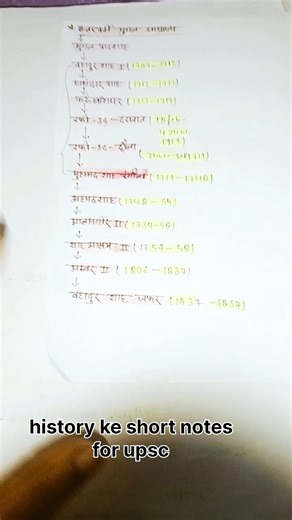 * उत्तरवर्ती मुगल साम्राज्य
मुगल बादशाह
बहादुर शाह I (1707-1712)
जहाँदार शाह (1712-1713)
फर्रुखसियर (1713-1719)
रफी-उद-दरजात (28/feb-
1719)
रफी-उद-दौला
मुहम्मद शाह रंगीला (1719-1748)
अहमदशाह (1748-54)
आलमगीर II (1754-58)
शाह आलम II (1754-58)
अकबर II (1806-1837)
बहादुर शाह जफर (1837-1857)
history ke short notes
for upsc